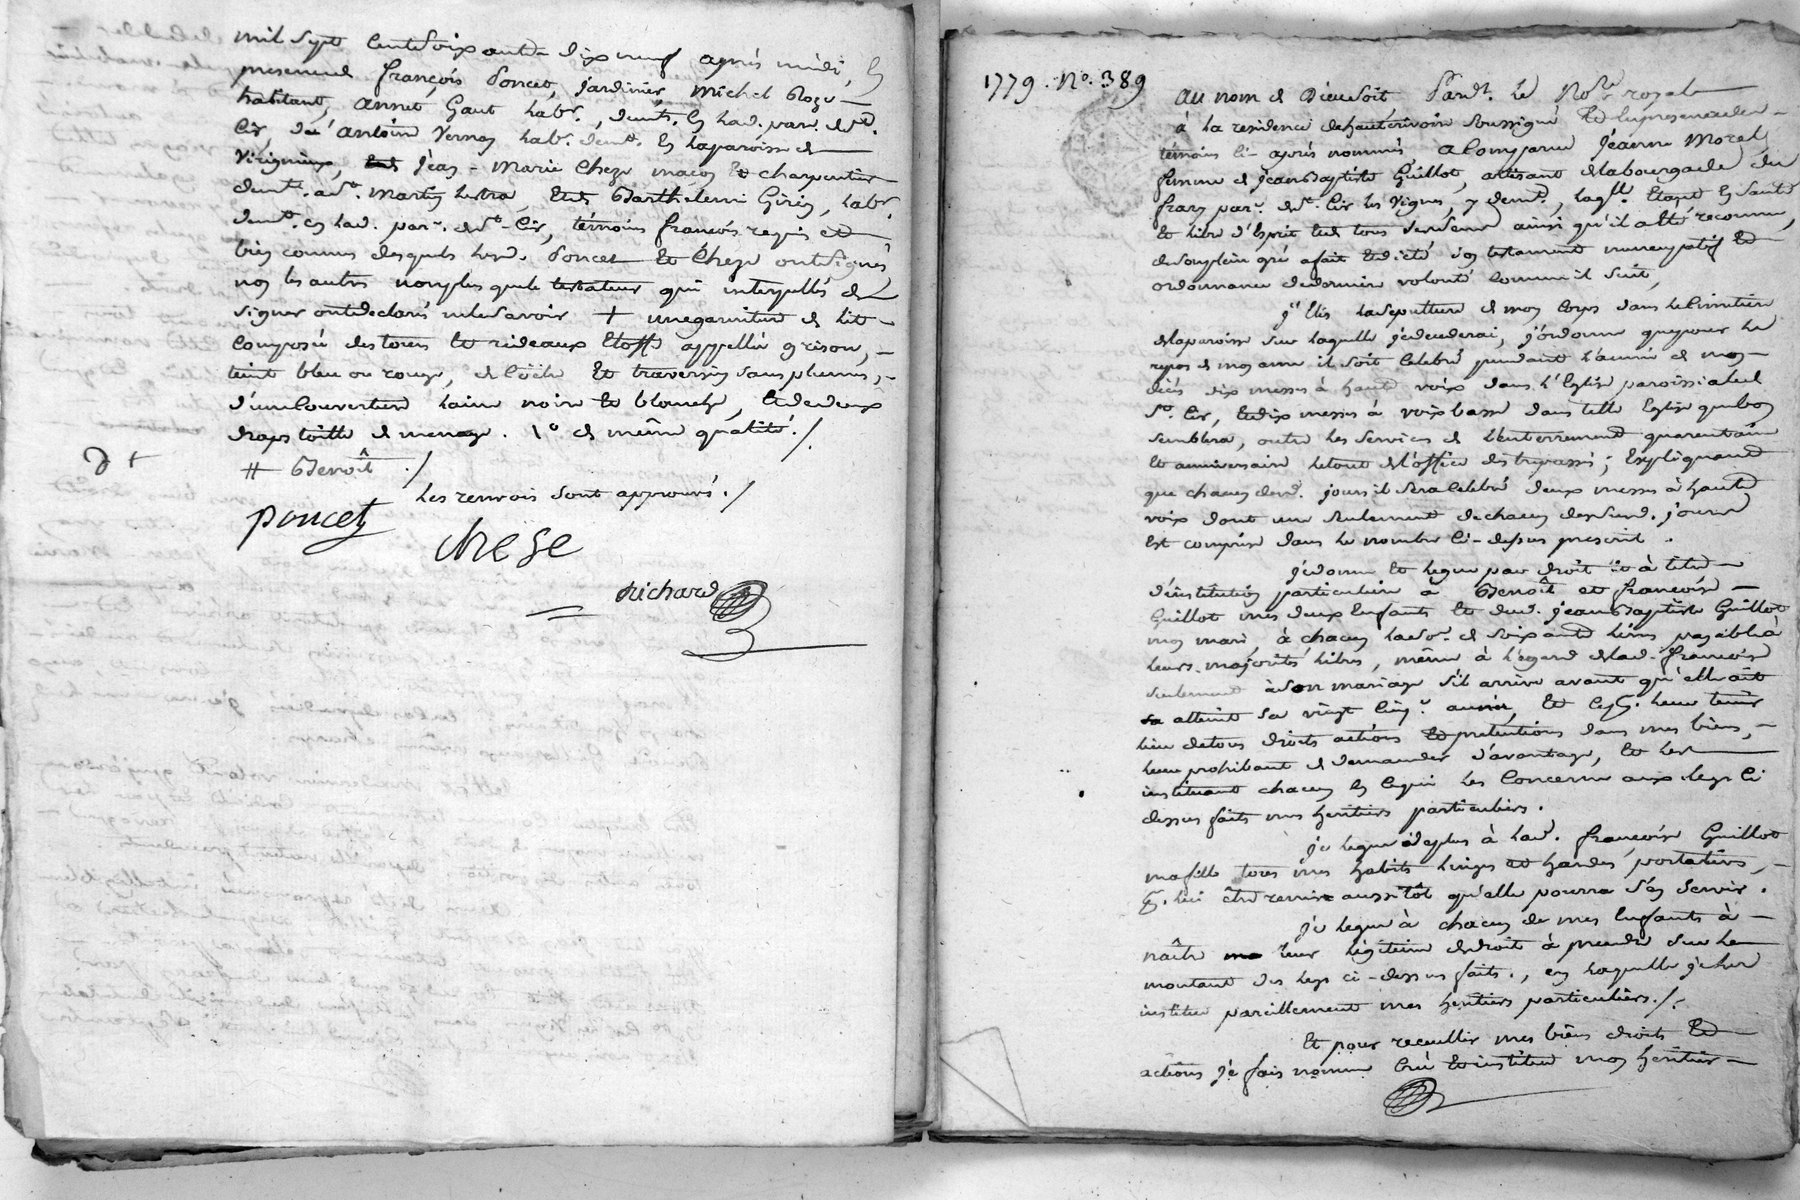 mil sept cent soixante dix neuf après midi, En
presence de françois Poncet, jardinier, michel
habitant, annet Gaut habt., demts. En lad. parr. de st.
Cir, de antoine Vernay habt. demt. En la paroisse de
Virigneux, jean-marie Cheze maçon Et charpentier
demt. a st. martin lestra, Et de Barthelemi Girin, habt.
demt. en lad. parr. de st. Cir, témoins françois requis et
bien connus desquels lesd. Poncet Et Cheze ont Signés
non les autres non plus que le testateur qui interpellés de
signer ont declarés ne le Savoir + une garniture de lit
composée des tours Et rideaux Etoffe appellée grison,
teint bleu ou rouge, de Coëtre Et traversin Sans plumes,
d'une Couverture laine noire Et blanche, Et de deux
draps toille de menage. de même qualité./.
# Benoît ./
Les renvois sont approuvés ./
poncet
chese
Richard
1779. No. 389
Au nom de Dieu Soit Pardt. le Nore. royal
à la residence de hauterivoire Soussigné Et En presence des
témoins ci-après nommés a Comparue jeanne Morel
femme de jean Baptiste Guillot, artisant de la bourgade du
frany parr. de st. Cir les Vignes, y demt., laqlle. Etant En Santé
Et libre d'Esprit Et de tous Ses Sens ainsi qu'il a Eté reconnu,
de Son plein gré a fait Et dicté Son testament nuncupatif Et
ordonnance de derniere volonté Comme il Suit,
j'Elis la Sepulture de mon Corps dans le Cimetière
de la paroisse Sur laquelle je decederai, j'ordonne que pour le
repos de mon ame il Soit Celebré pendant l'année de mon
décés dix messes à haute voix dans l'Eglise paroissiale de
St. Cir, Et dix messes à voix basse dans telle Eglise que bon
Semblera, outre les Services de l'enterrement quarentaine
Et anniversaire le tout de l'office des trepassés; Expliquant
que chacun desd. jours il Sera Celebré deux messes à haute
voix dont une Seulement de chacun des Susd. jours
Est comprise dans le nombre ci-dessus prescrit.
je donne Et legue par droit Et à titre
d'institution particuliere à Benoît et françoise
Guillot mes deux Enfants Et dud. jean Baptiste Guillot
mon mari à chacun la Se. de Soixante livres payable à
leurs majorités libres, même à l'égard de lad. françoise
Seulement à Son mariage S'il arrive avant qu'elle ait
atteint Sa vingt Cinqe. année, Et ce pr. leur tenir
lieu de tous droits actions Et pretentions dans mes biens,
leur prohibant de demander d'avantage, Et les
instituant chacun En ce qui les Concerne aux legs Ci
dessus faits mes heritiers particuliers.
je legue de plus à lad. françoise Guillot
ma fille tous mes habits linges Et hardes portatives,
pr. lui être remis aussitôt qu'elle pourra S'en Servir.
je legue à chacun de mes Enfants à
naître leur légitime de droit à prendre Sur le
montant des legs ci-dessus faits, en laquelle je les
institue pareillement mes heritiers particuliers./.
Et pour recueillir mes biens droits Et
actions je fais nomme Crée Et institue mon heritier